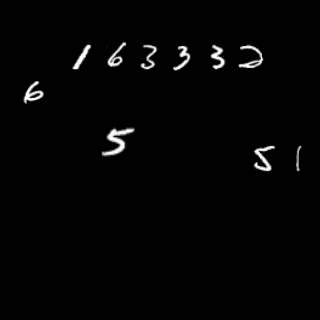 163332
6
5
51